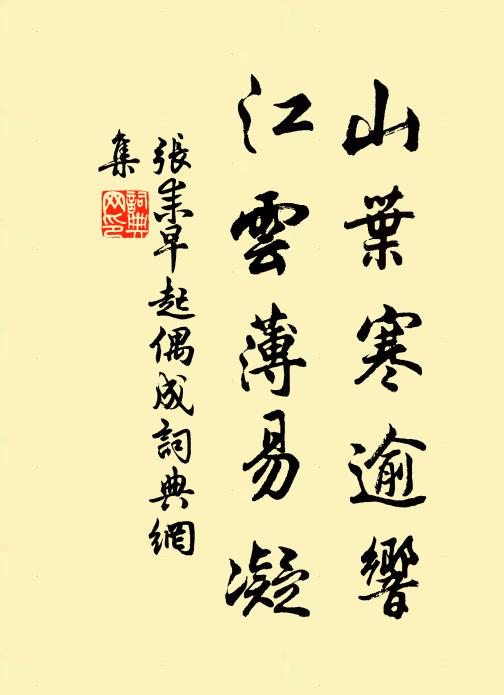 山葉寒逾響
江雲薄易凝
張耒早起偶成詞典網
集
詞典
网印